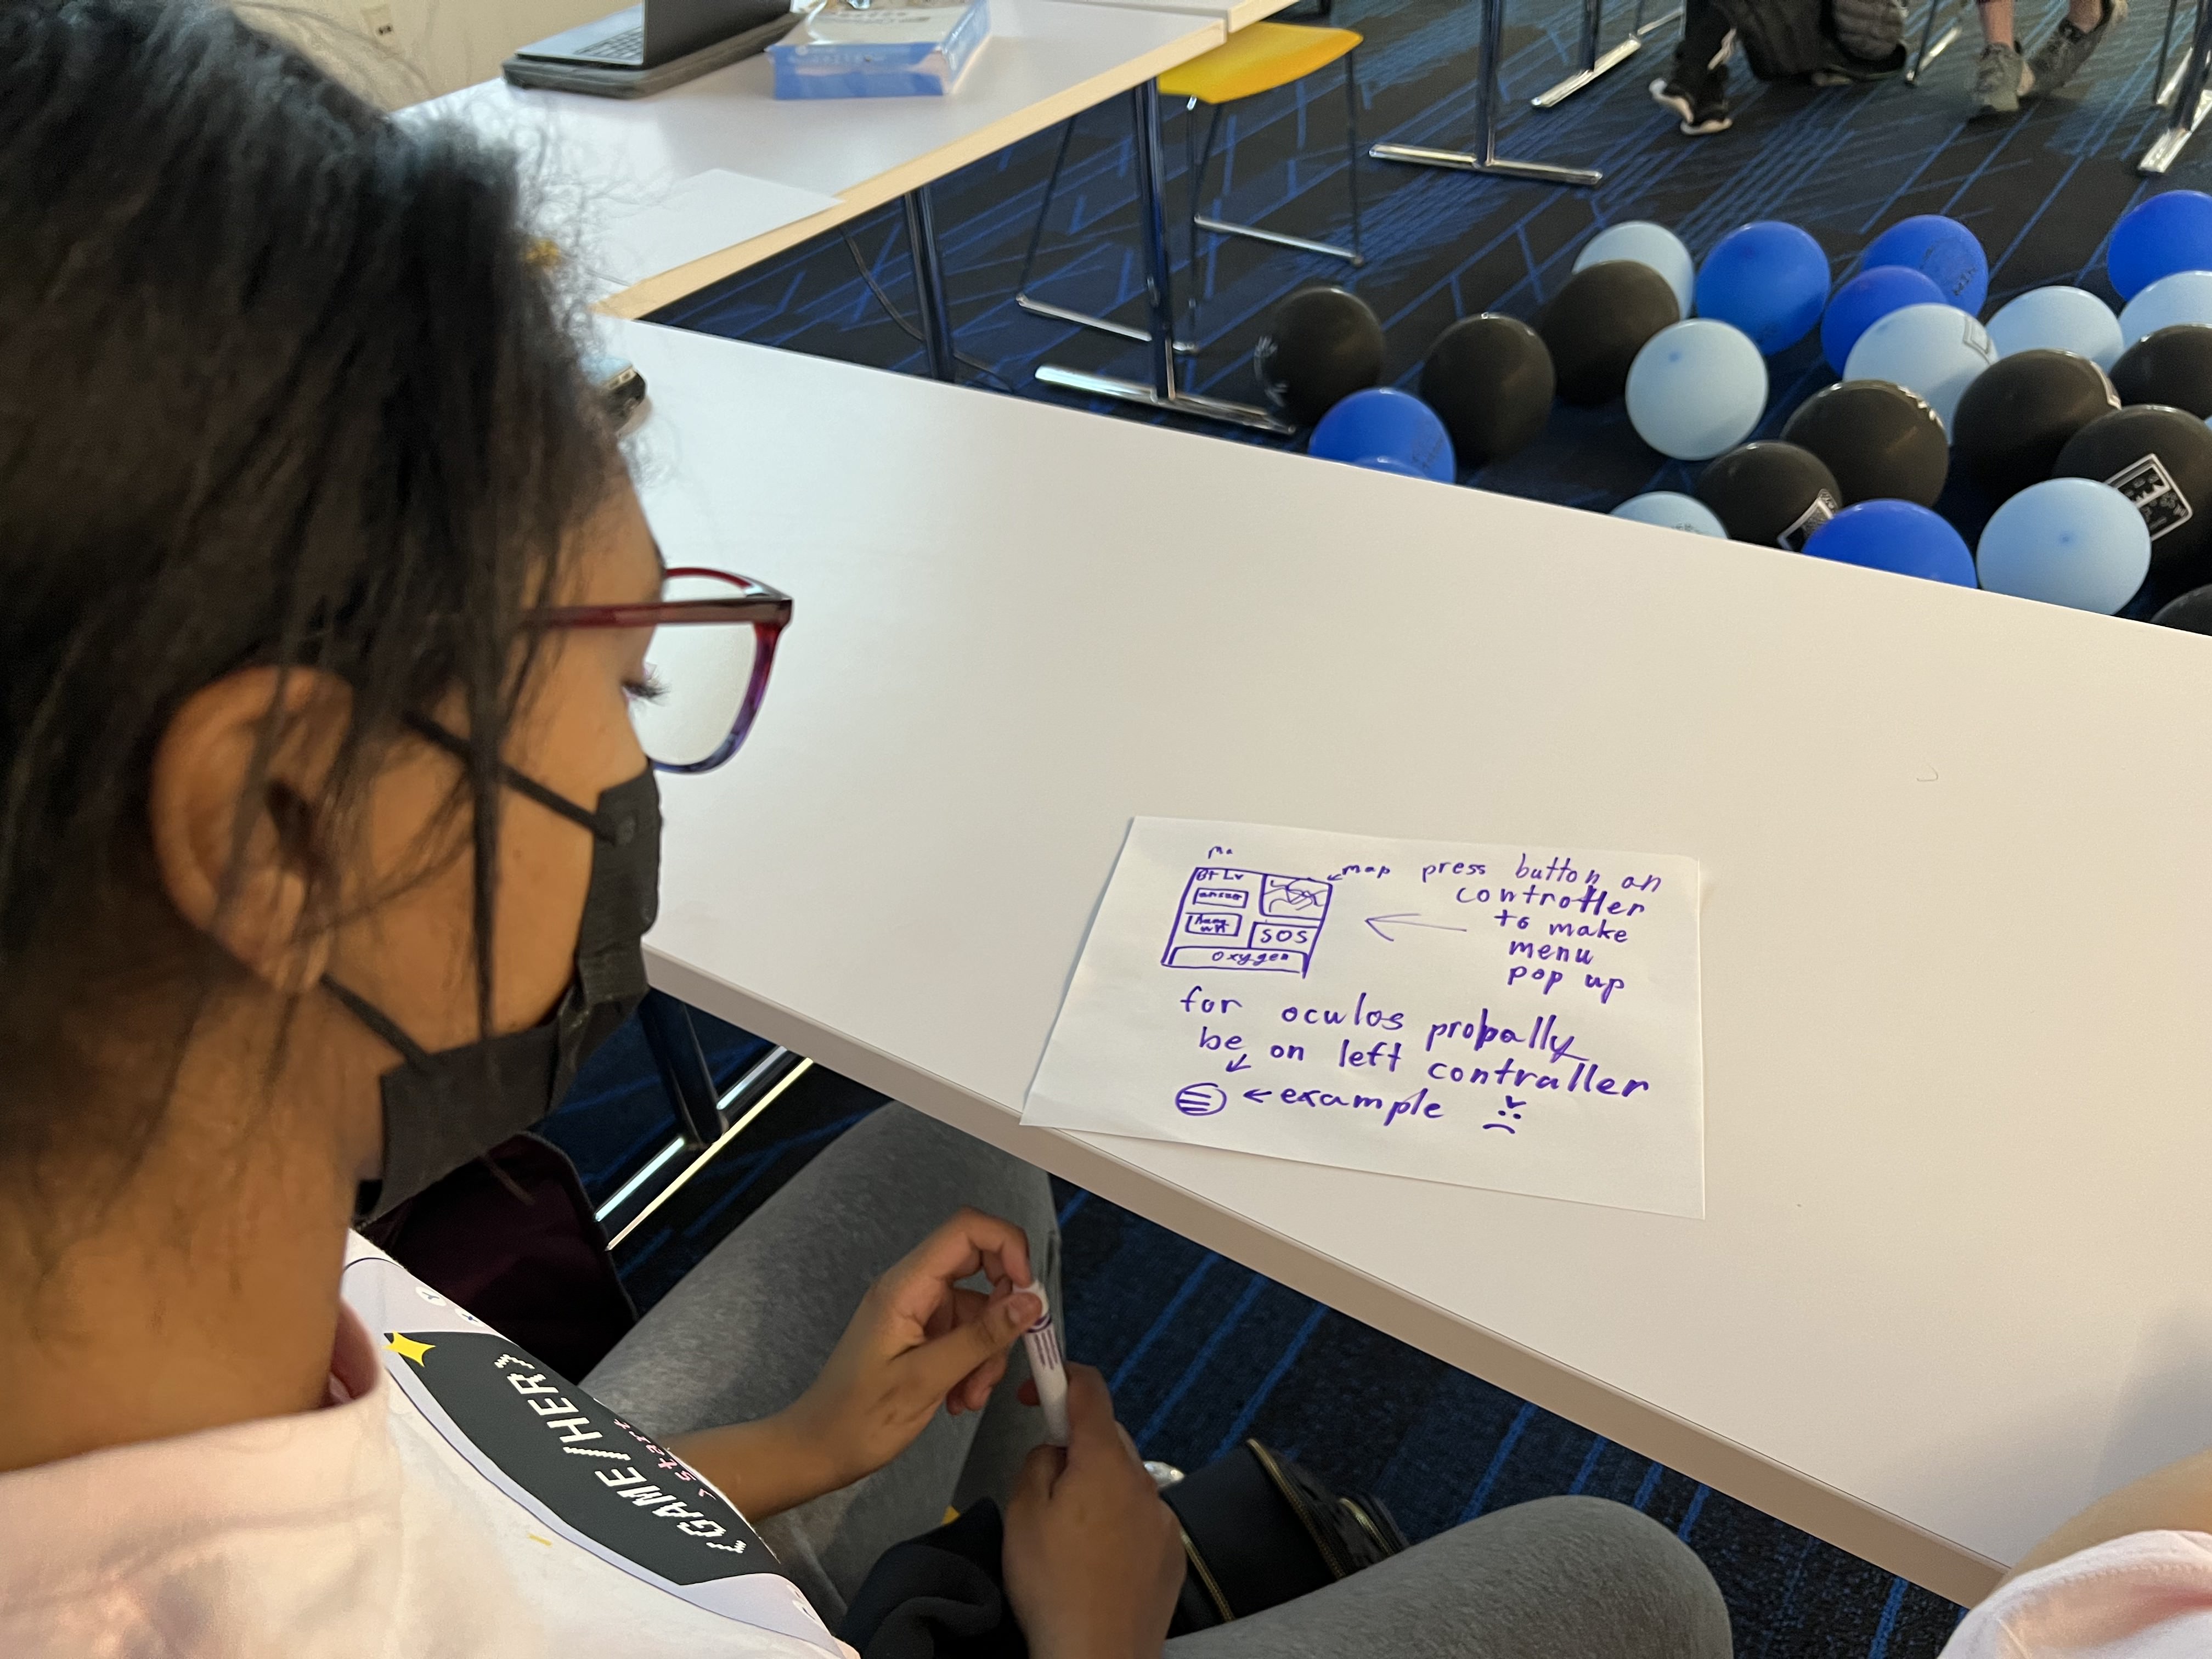 map
SOS
oxygen
press button on
controller
to make
menu
pop up
for oculos probally
be on left contraller
example
GAME HER
start